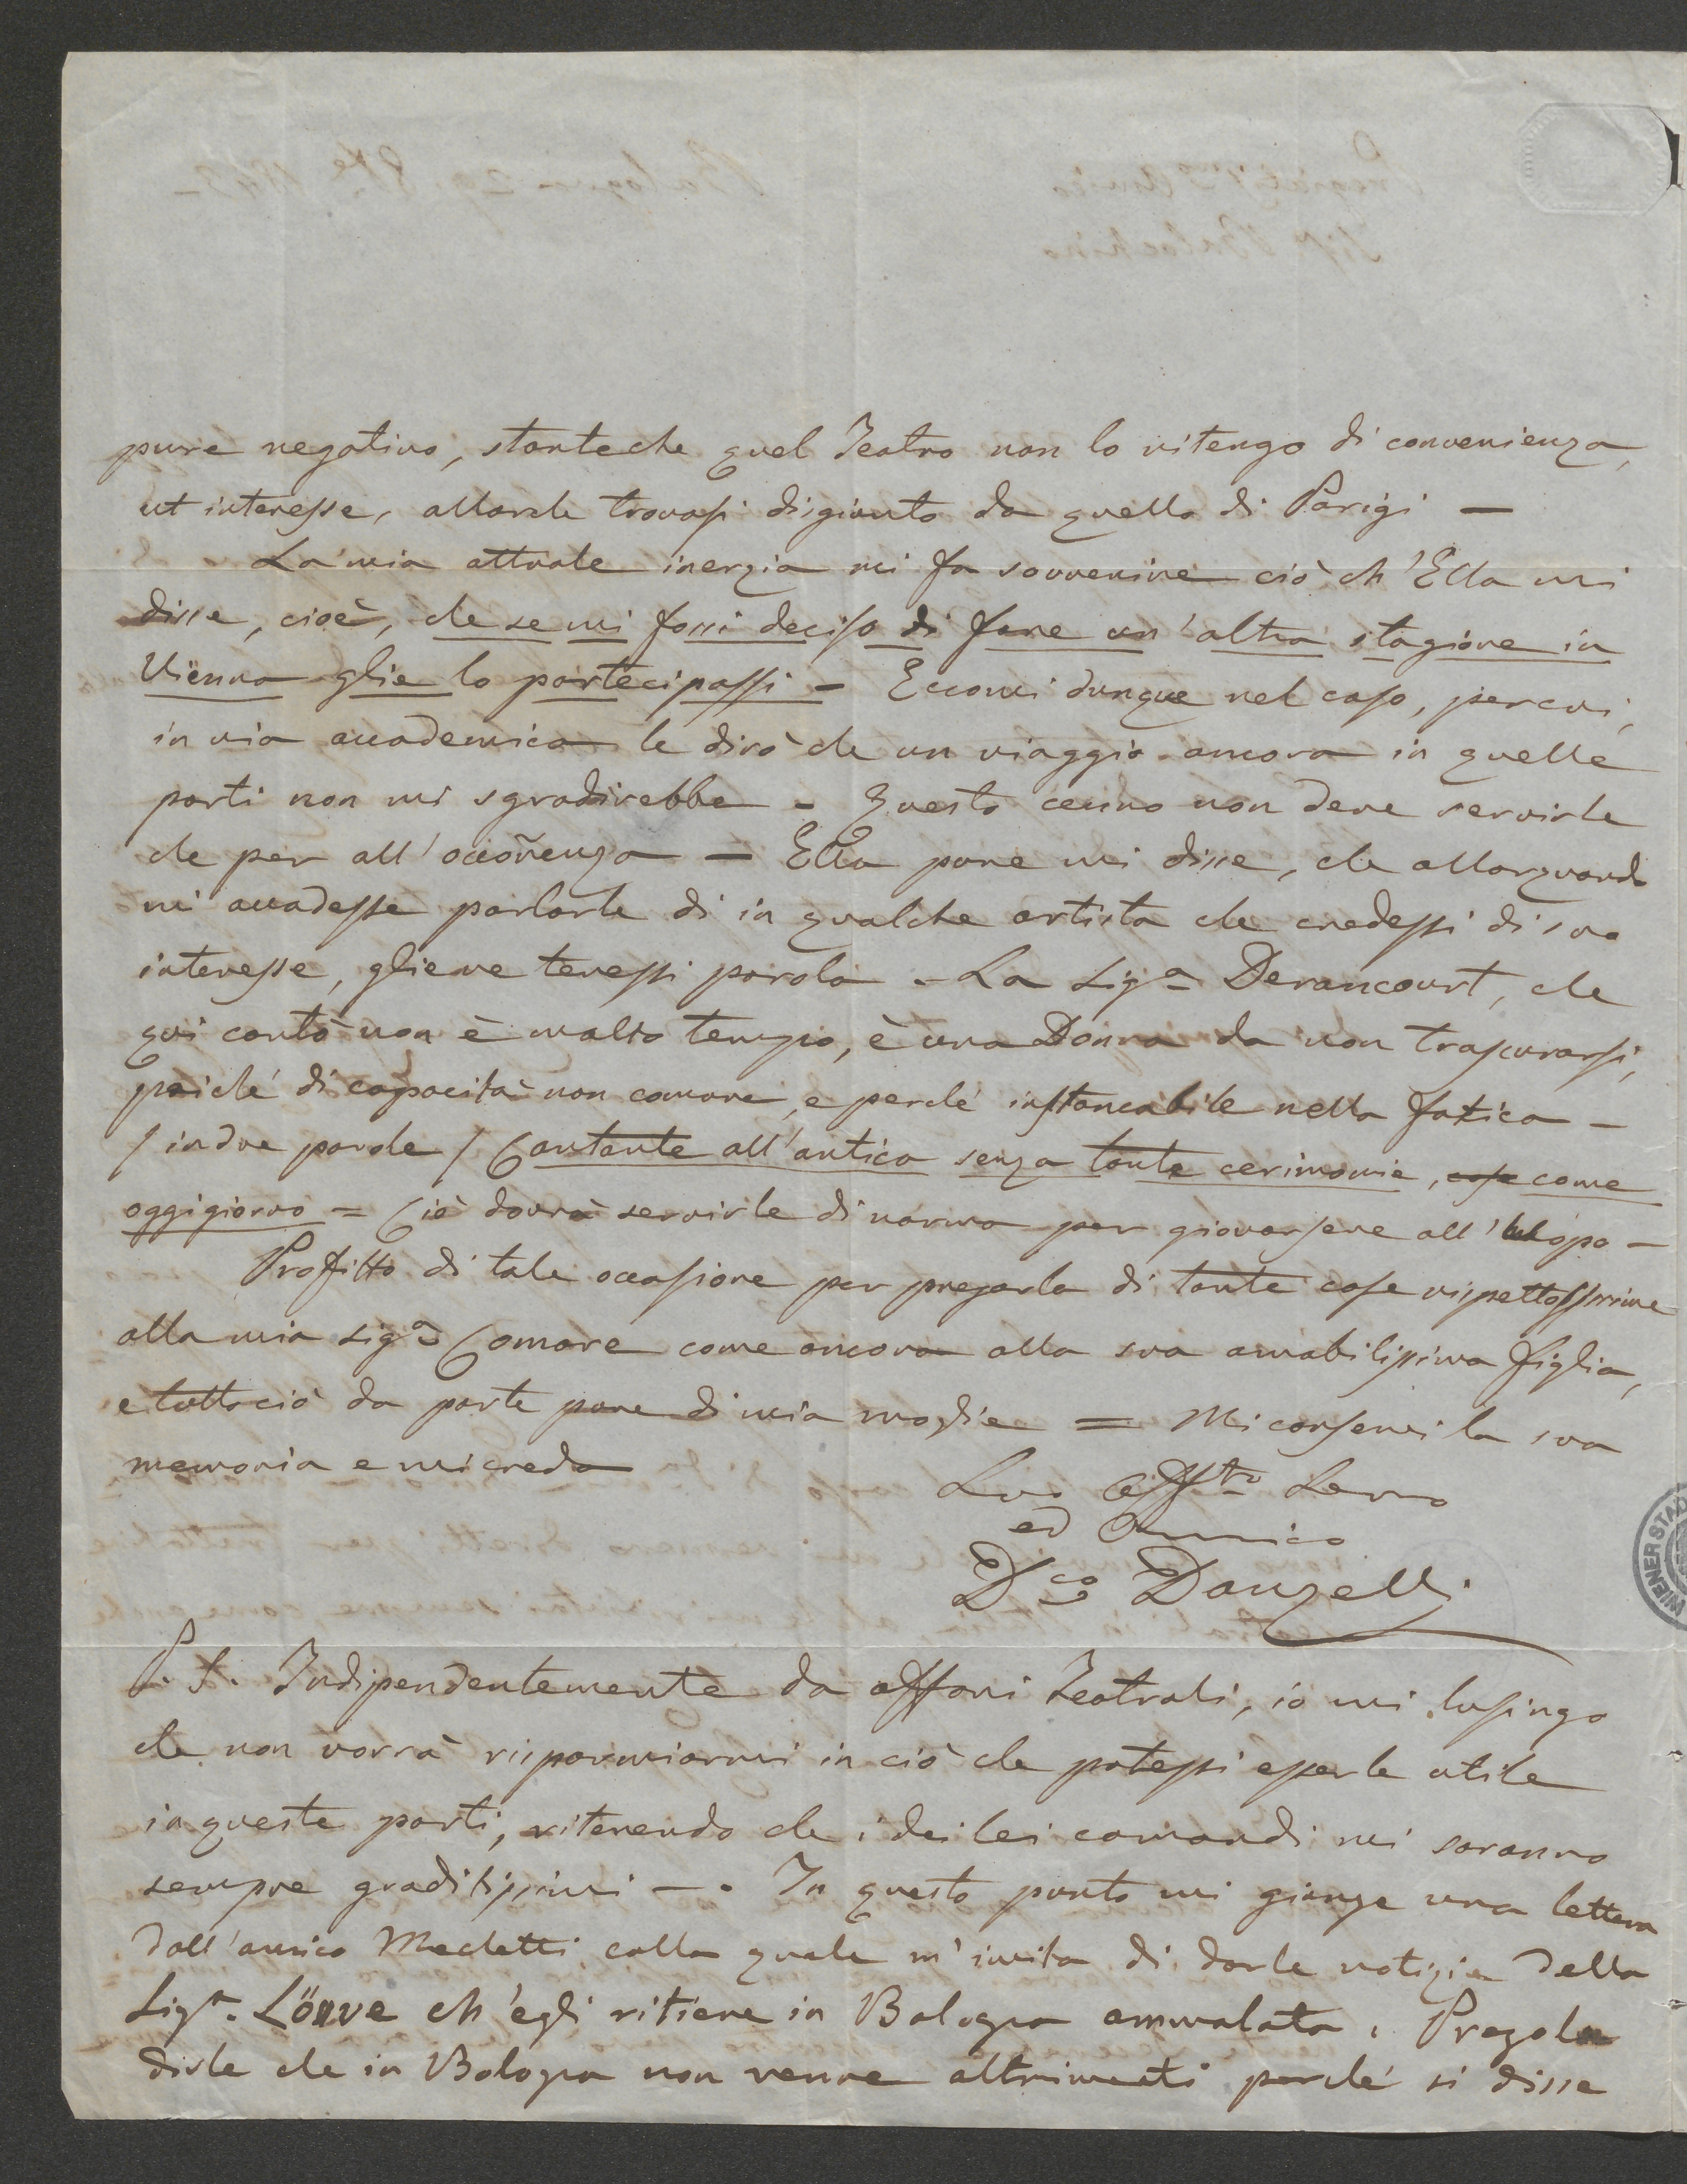 pure negativo, stanteche quel Teatro non lo ritengo di convenienza,
ed interesse, allorche trovasi disgiunto da quello di Parigi —
La mia attuale inerzia mi fa sovvenire ciò ch'Ella mi
disse, cioè, che se mi fossi deciso di fare un'altra stagione in
Vienna glie lo partecipassi – Eccomi dunque nel caso, percui,
in via accademica le dirò che un viaggio ancora in quelle
parti non mi sgradirebbe – Questo cenno non deve servirle
che per all'occorenza — Ella pure mi disse, che allorquando
mi accadesse parlarle di in qualche artista che credessi di suo
interesse, gliene tenessi parola – La Sigª Derancourt, che
qui cantò non è molto tempo, è una Donna da non trascurarsi,
poiché di capacità non comune, e perché instancabile nella fatica –
/ in due parole / Cantante all'antica senza tante cerimonie, cose come
oggigiorno = Ciò dovrà servirle di norma per giovarsene all'uopo –
Profitto di tale occasione per pregarla di tante cose rispettosissime
alla mia Sigª Comare come ancora alla sua amabilissima figlia,
e tuttociò da parte pure di mia moglie = Mi conservi la sua
memoria e mi creda
Suo Affto Servo
ed Amico
Dco Donzelli
P.S. Indipendentemente da affari Teatrali, io mi lusingo
che non vorrà risparmiarmi in ciò che potessi esserle utile
in queste parti, ritenendo che i dei lei comandi mi saranno
sempre graditissimi —. In questo punto mi giunge una lettera
dall'amico Mechetti colla quale m'invita di darle notizie della
Sigª. Löwe ch'egli ritiene in Bologna ammalata. Pregola
dirle che in Bologna non venne altrimenti perché si disse
WIENER STAD